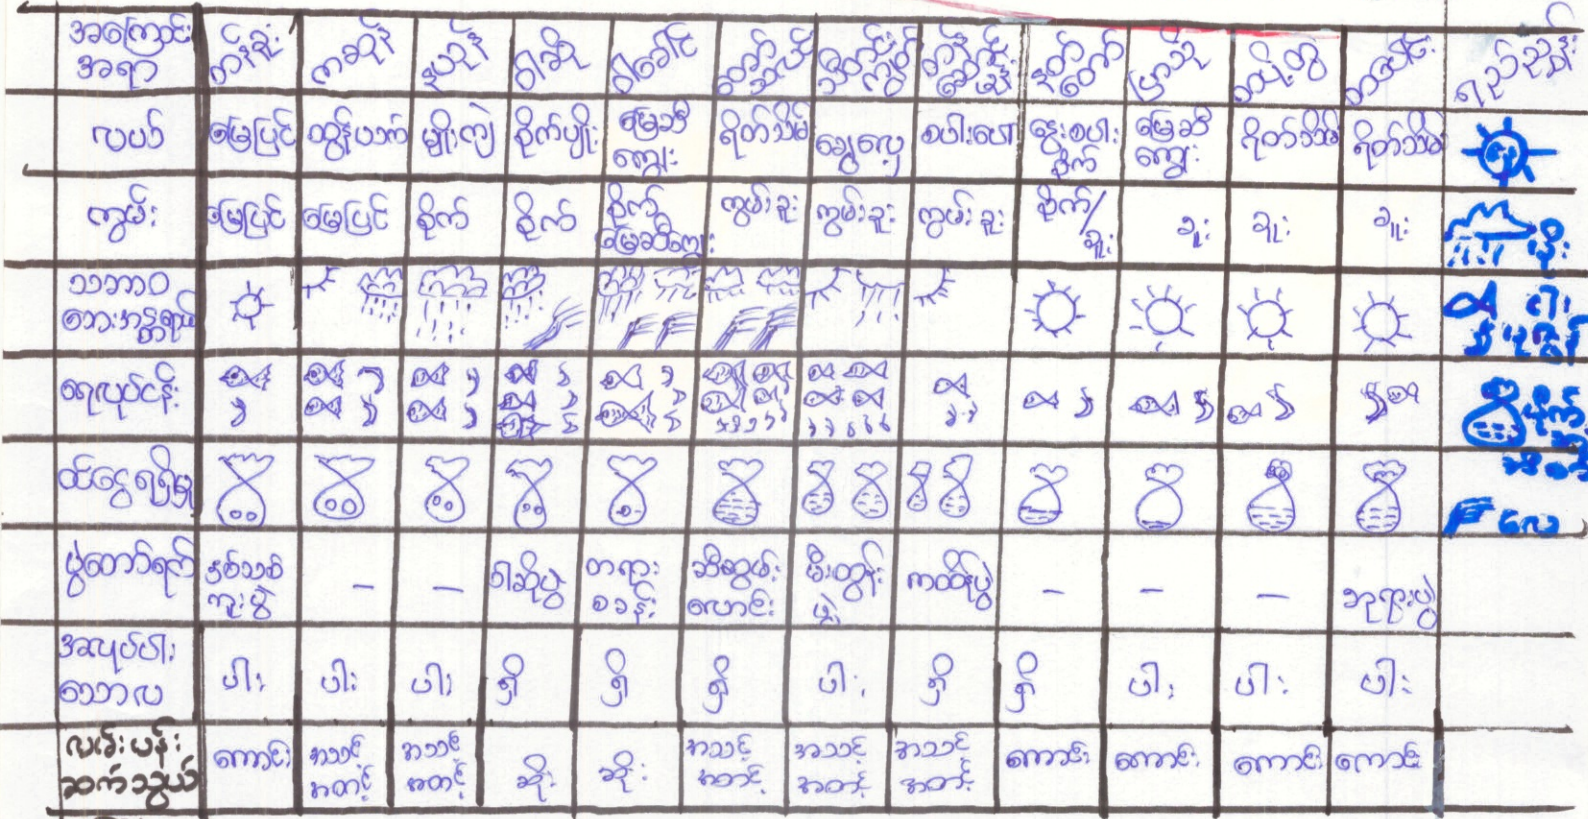 အကြောင်း အရာ တန်ခူး ကဆုန် နယုန် ဝါဆို ဝါခေါင် တော်သလင်း သီတင်းကျွတ် တန်ဆောင်မုန်း နတ်တော် ပြာသို တပို့တွဲ တပေါင်း ရည်ညွှန်း
လယာ် မြေပြင် ထွန်ယက် မျိုးကျဲ စိုက်ပျိုး မြေဆီကျွေး ရိတ်သိမ်း ချွေလှေ့ စပါးပေါ် နွေးစပါးစိုက် မြေဆီကျွေး ရိတ်သိမ်း ရိတ်သိမ်း နေ
ကွမ်း မြေပြင် မြေပြင် စိုက် စိုက် စိုက် မြေဆီကျွေး ကွမ်းခူး ကွမ်းခူး ကွမ်းခူး စိုက်/ခူး ခူး ခူး ခူး မိုး
သဘာဝ ဘေးအန္တရာယ် ငါး
ရေလုပ်ငန်း
ဝင်ငွေရရှိမှု လေ
ပွဲတော်ရက် နှစ်သစ်ကူးပွဲ – – ဝါဆိုပွဲ တရားစခန်း ဆီဆွမ်းလောင်း မီးထွန်းပွဲ ကထိန်ပွဲ – – – ဘုရားပွဲ
အလုပ်ပါးသောလ ပါး ပါး ပါး ရှိ ရှိ ရှိ ပါး ရှိ ရှိ ပါး ပါး ပါး
လမ်းပန်းဆက်သွယ် ကောင်း အသင့်အတင့် အသင့်အတင့် ဆိုး ဆိုး အသင့်အတင့် အသင့်အတင့် အသင့်အတင့် ကောင်း ကောင်း ကောင်း ကောင်း